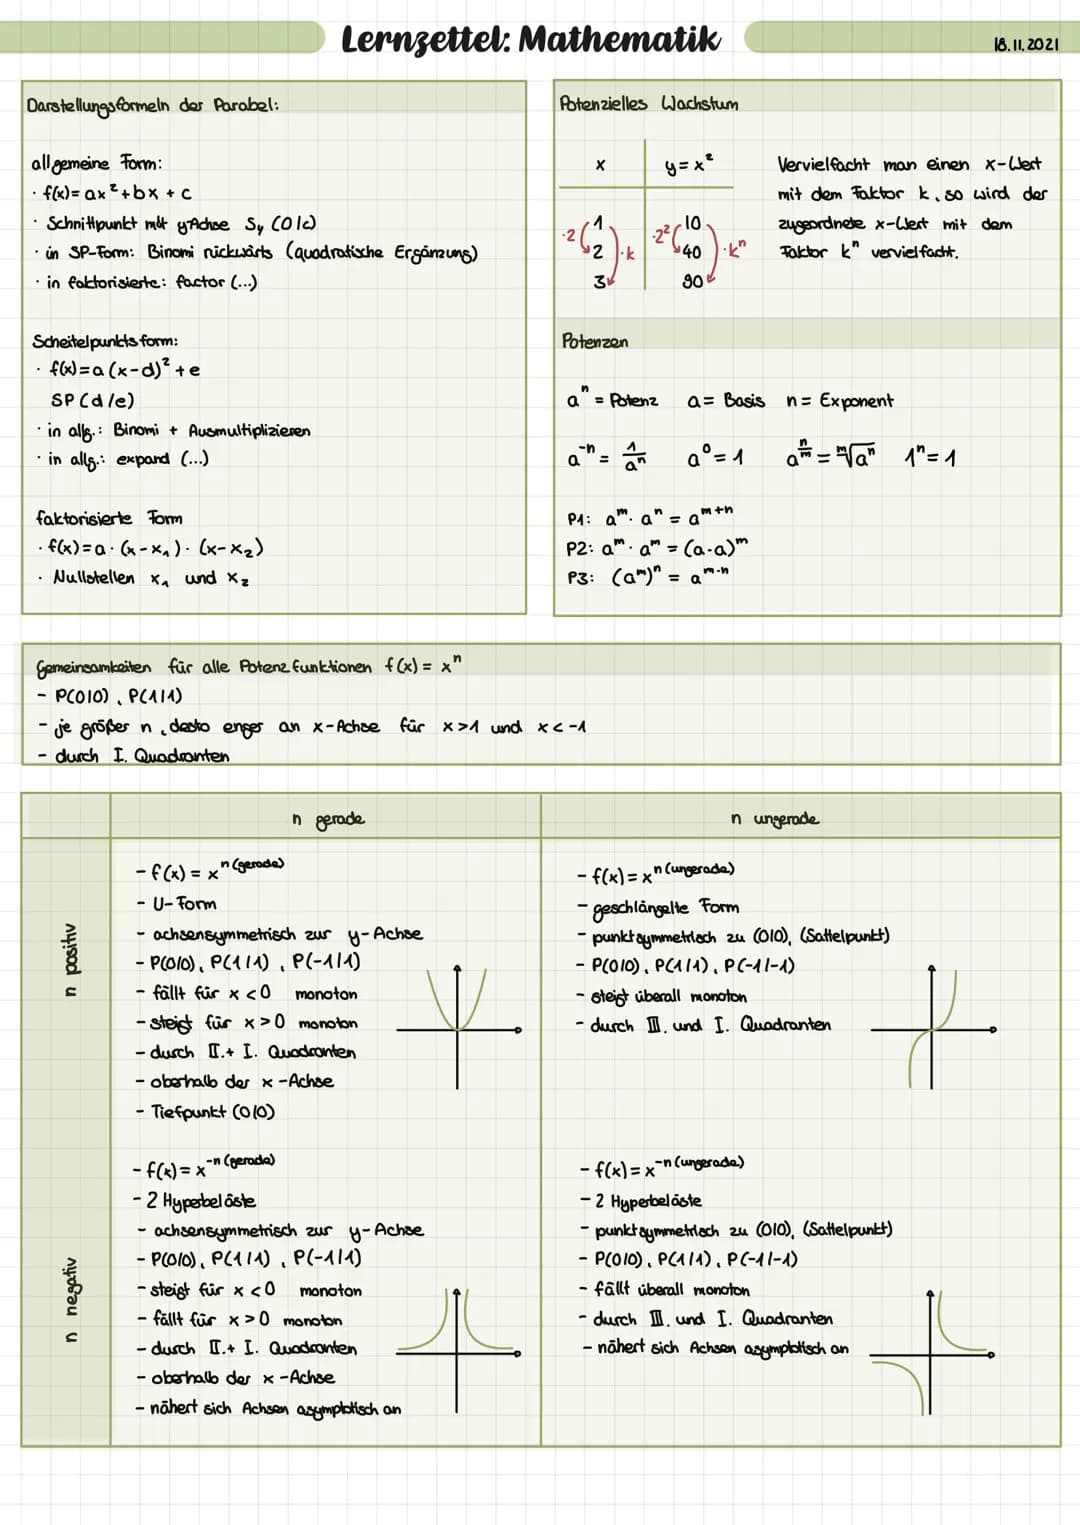 Lernzettel: Mathematik
18.11.2021
Darstellungsformeln der Parabel:
allgemeine Form:
· f(x) = ax² + bx + c
· Schnittpunkt mit y-Achse Sy (0/c)
· in SP-Form: Binomi rückwärts (quadratische Ergänzung)
· in faktorisierte: factor (...)
Scheitelpunktsform:
· f(x) = a (x-d)² + e
SP (d/e)
· in allg.: Binomi + Ausmultiplizieren
· in allg.: expand (...)
faktorisierte Form
· f(x) = a · (x - x₁) · (x - x₂)
· Nullstellen x₁ und x₂
Potenzielles Wachstum
x y = x²
1 10
·2 2 ·k ·2² 40 ·kⁿ
3 90
Vervielfacht man einen x-Wert
mit dem Faktor k, so wird der
zugeordnete x-Wert mit dem
Faktor kⁿ vervielfacht.
Potenzen
aⁿ = Potenz a = Basis n = Exponent
a⁻ⁿ = 1/aⁿ a⁰ = 1 a^(n/m) = ᵐ√aⁿ 1ⁿ = 1
P1: aᵐ · aⁿ = aᵐ⁺ⁿ
P2: aᵐ · aᵐ = (a·a)ᵐ
P3: (aᵐ)ⁿ = aᵐ·ⁿ
Gemeinsamkeiten für alle Potenzfunktionen f(x) = xⁿ
- P(0|0), P(1|1)
- je größer n, desto enger an x-Achse für x>1 und x<-1
- durch I. Quadranten
n gerade
n ungerade
n positiv
- f(x) = x^n (gerade)
- U-Form
- achsensymmetrisch zur y-Achse
- P(0/0), P(1/1), P(-1/1)
- fällt für x<0 monoton
- steigt für x>0 monoton
- durch II.+ I. Quadranten
- oberhalb der x-Achse
- Tiefpunkt (0|0)
- f(x) = x^n (ungerade)
- geschlängelte Form
- punktsymmetrisch zu (0|0), (Sattelpunkt)
- P(0|0), P(1/1), P(-1/-1)
- steigt überall monoton
- durch III. und I. Quadranten
n negativ
- f(x) = x^-n (gerade)
- 2 Hyperbeläste
- achsensymmetrisch zur y-Achse
- P(0/0), P(1/1), P(-1/1)
- steigt für x<0 monoton
- fällt für x>0 monoton
- durch II.+ I. Quadranten
- oberhalb der x-Achse
- nähert sich Achsen asymptotisch an
- f(x) = x^-n (ungerade)
- 2 Hyperbeläste
- punktsymmetrisch zu (0|0), (Sattelpunkt)
- P(0|0), P(1/1), P(-1/-1)
- fällt überall monoton
- durch III. und I. Quadranten
- nähert sich Achsen asymptotisch an